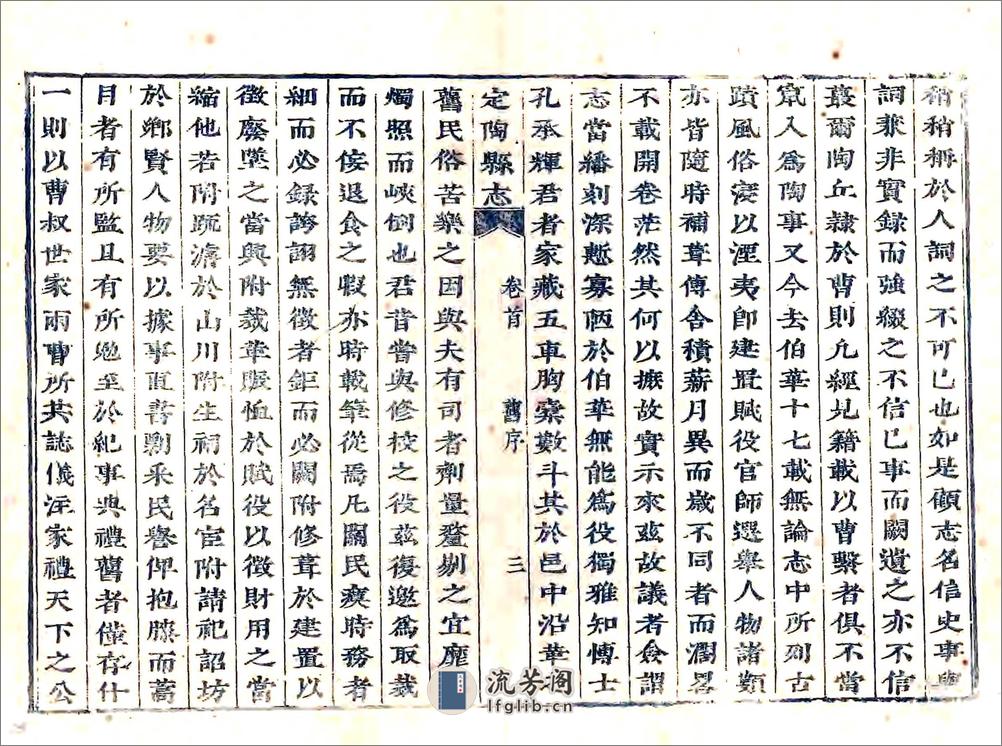 稍稍稱於人詞之不可已也如是顧志名信史事與
詞兼非實録而強綴之不信已事而闕遺之亦不信
蕞爾陶丘隷於曹則凡經見籍載以曹繫者俱不當
竄入爲陶事又今去伯華十七載無論志中所列古
蹟風俗寖以湮夷卽建置賦役官師選舉人物諸類
亦皆隨時補葺傳舍積薪月異而歲不同者而濶畧
不載開卷茫然其何以摭故實示來茲故議者僉謂
志當繙刻深慙寡陋於伯華無能爲役獨雅知博士
孔承輝君者家藏五車胸羅數斗其於邑中沿革
定陶縣志 卷首 舊序 三
舊民俗苦樂之因與夫有司者劑量釐剔之宜靡
燭照而峽倒也君昔嘗與修校之役茲復邀爲取裁
而不佞退食之暇亦時載筆從焉凡關民瘼時務者
細而必録誇詡無徵者鉅而必闕附修葺於建置以
徵廢墜之當興附裁革賑恤於賦役以徵財用之當
縮他若附疏濬於山川附生祠於名宦附請祀詔坊
於鄉賢人物要以據事直書剿采民譽俾抱牘而蒿
目者有所監且有所勉至於紀事典禮舊者僅存什
一則以曹叔世家兩曹所共誌儀注家禮天下之公
流芳阁
lfglib.cn